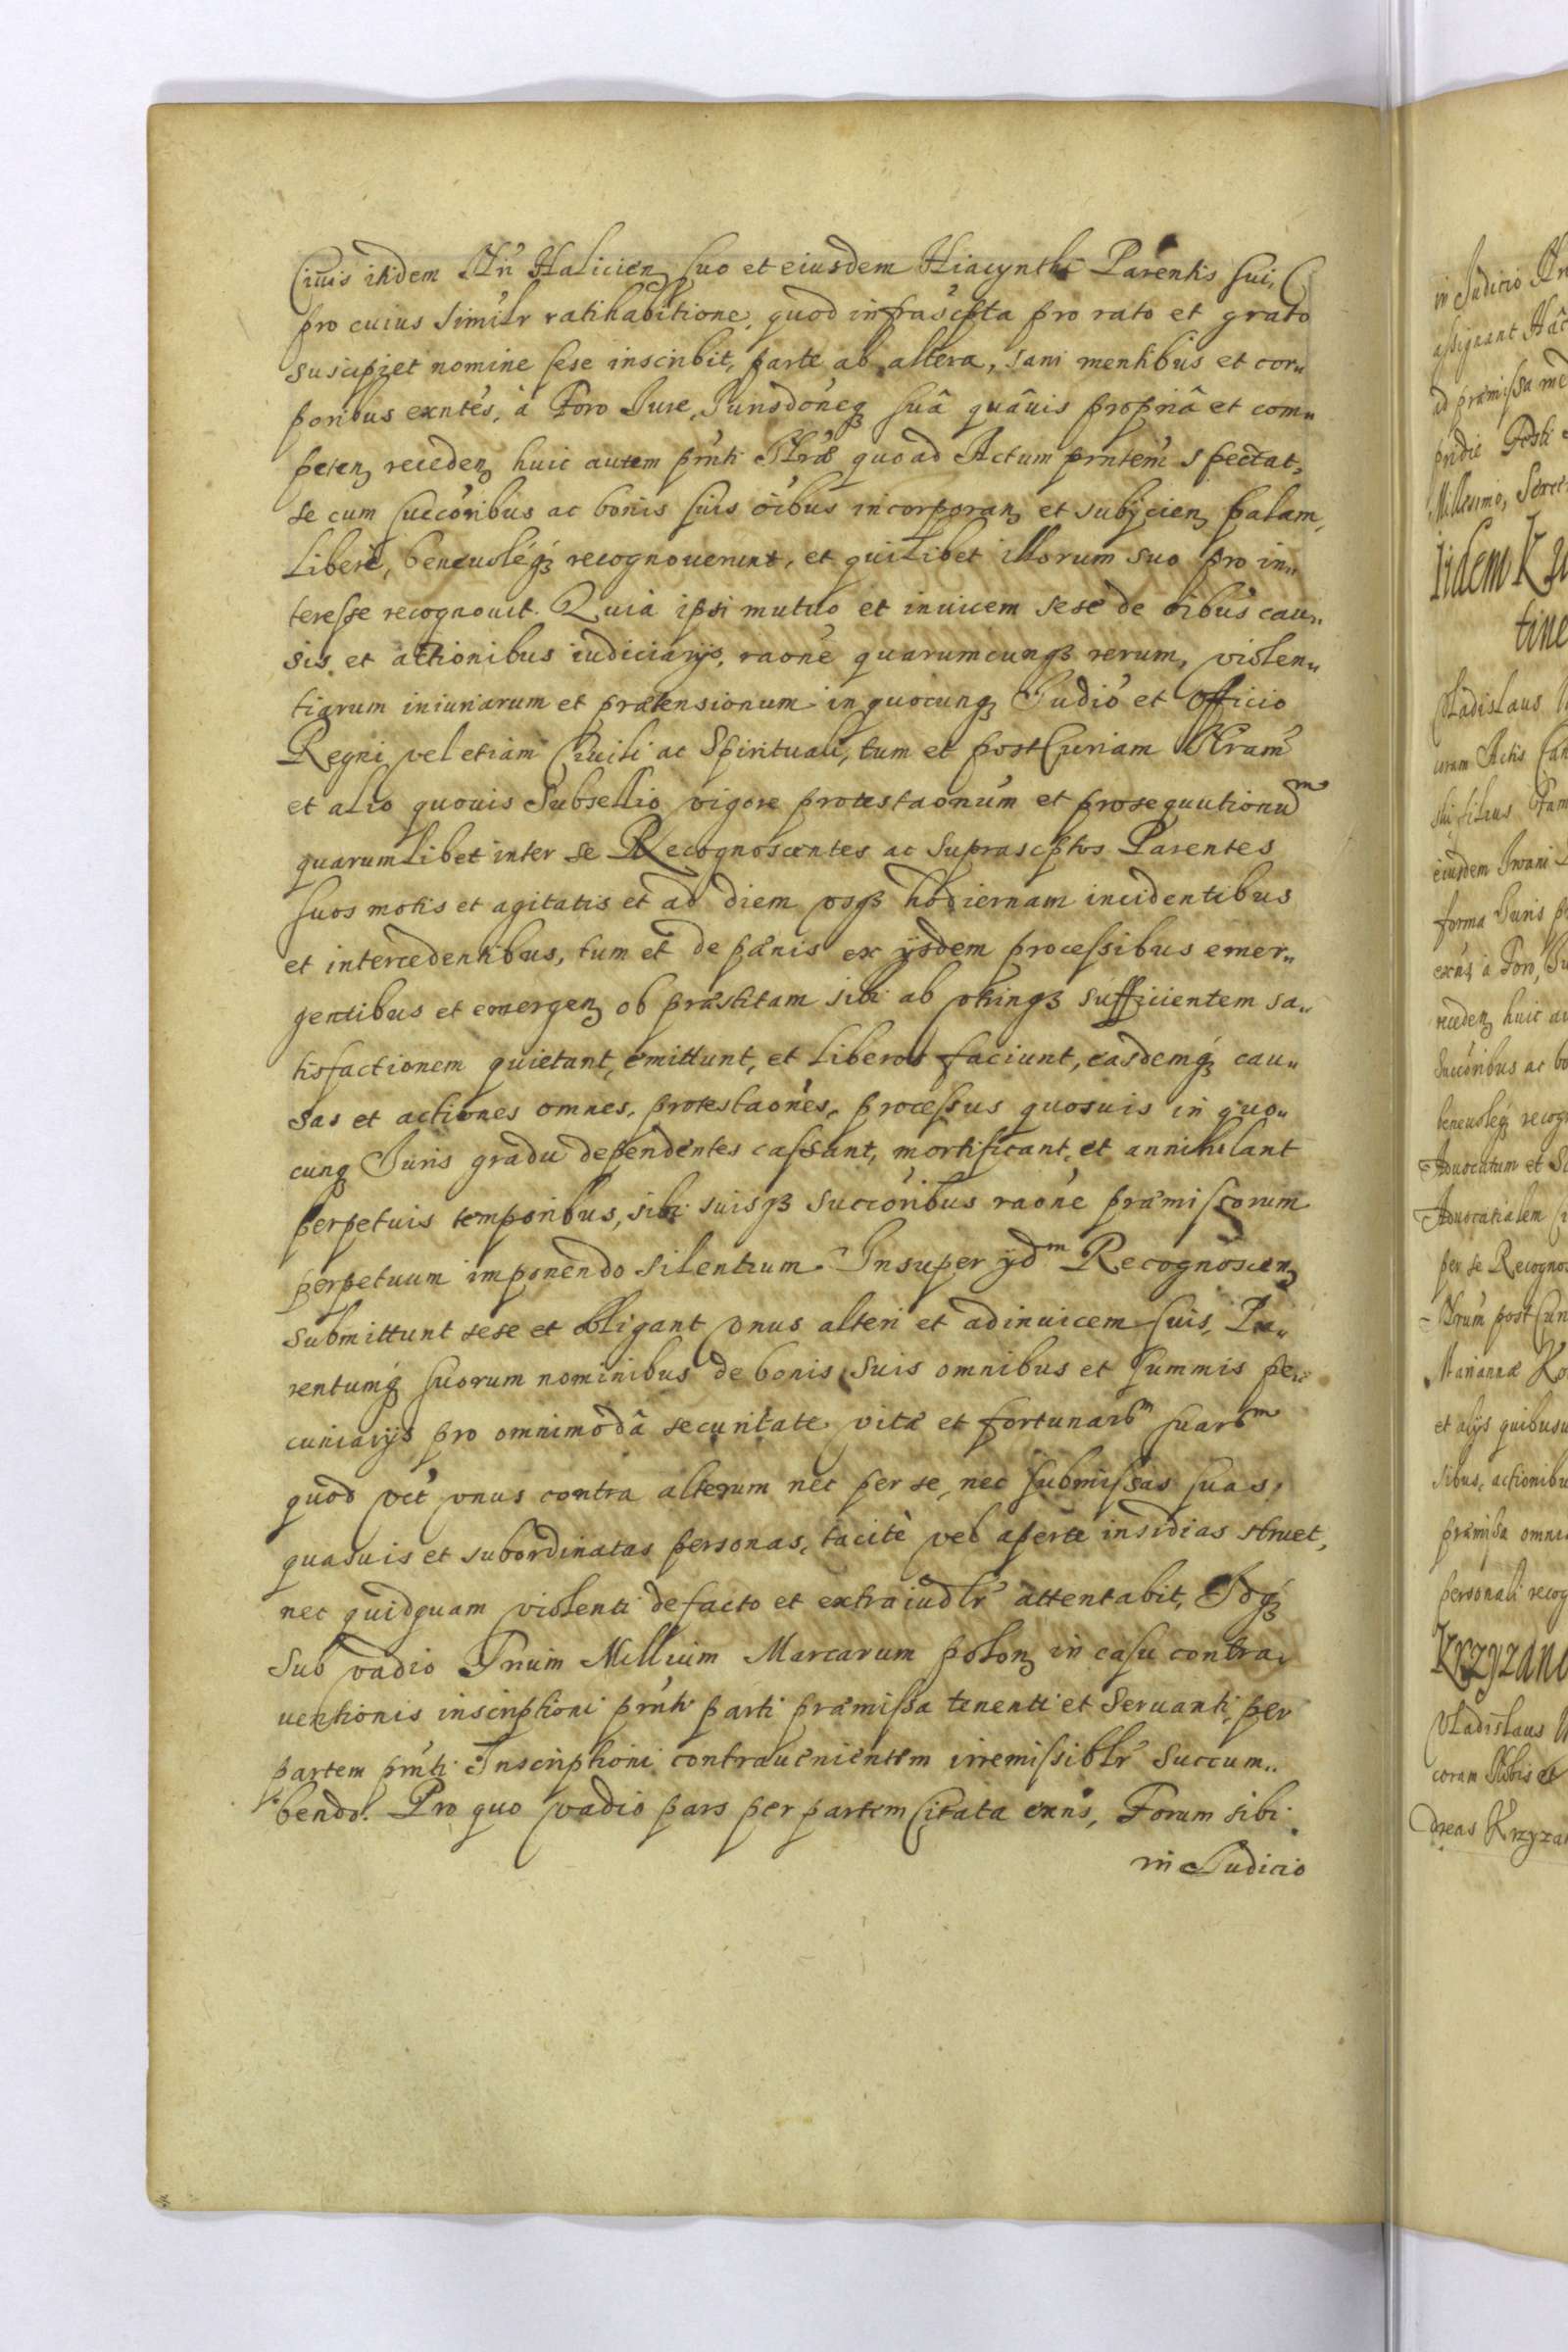 Ciuis itidem Nr̃i Halicien̄ suo et eiusdem Hiacynthi Parentis sui,
pro cuius similr ratihabitione, quod infrascpta pro rato et grato
suscipiet nomine sese inscribit, parte ab altera, sani mentibus et cor„
poribus exntes, à Foro Iure, Iurisdoneqȝ suâ quâuis propriâ et com„
peten̄ receden̄ huic autem prnti N̄ræ quo ad Actum prntem spectat,
se cum succoribus ac bonis suis oibus incorporan̄ et subijcien̄ palam,
Liberè, beneuoléqȝ recognouerunt, et quilibet illorum suo pro in„
teresse recognouit. Quia ipsi mutuo et inuicem sese de oibus cau„
sis et actionibus iudiciarijs, raone quarumcunqȝ rerum, violen„
tiarum iniuriarum et prætensionum in quocunqȝ Iudio et Officio
Regni vel etiam Ciuili ac Spirituali, tum et post Curiam N̄ram
et alio quouis Subsellio vigore protestaonum et prosequutionum
quarumlibet inter se Recognoscentes ac suprascptos Parentes
suos motis et agitatis et ad diem vsqȝ hodiernam incidentibus
et intercedentibus, tum et de pænis ex ijsdem processibus emer„
gentibus et emergen̄ ob præstitam sibi ab vtrinqȝ sufficientem sa„
tisfactionem quietant, emittunt, et Liberos faciunt, easdemqȝ cau„
sas et actiones omnes, protestaones, processus quosuis in quo„
cunqȝ Iuris gradu dependentes cassant, mortificant, et annihilant
perpetuis temporibus, sibi suisqȝ succoribus raone præmissorum
perpetuum imponendo silentium. Insuper ijdm Recognoscen̄
submittunt sese et obligant vnus alteri et adinuicem suis, Pa„
rentumqȝ suorum nominibus de bonis suis omnibus et summis pe„
cuniarijs pro omnimodâ securitate vitæ et fortunarm̄ suarm̄
quod vt vnus contra alterum nec per se, nec submissas suas,
quasuis et subordinatas personas, tacitè vel apertè insidias struet,
nec quidquam violenti de facto et extraiudlr attentabit, Idqȝ
sub vadio Trium Millium Marcarum polon̄ in casu contra„
uentionis inscriptioni prnti parti præmissa tenenti et seruanti, per
partem prnti Inscriptioni contrauenientem irremissiblr succum„
bendo. Pro quo vadio pars per partem citata exns, Forum sibi
in Iudicio
in Judicio
assignant
ad præmissa
pridie Festi
Millesimo,
Iidem
Vladislaus
coram Actis
filius
eiusdem Iwani
forma Iuris
exns à Foro,
receden̄ huic
Succoribus ac
beneuoléqȝ
Aduocatum et
Aduocatialem
per se
post
Mariannæ
et alijs quibus
sibus, actionibu
præmissa omni
personali recog
Krzyzano
Vladislaus
coram Nobis et
dreas Krzyza